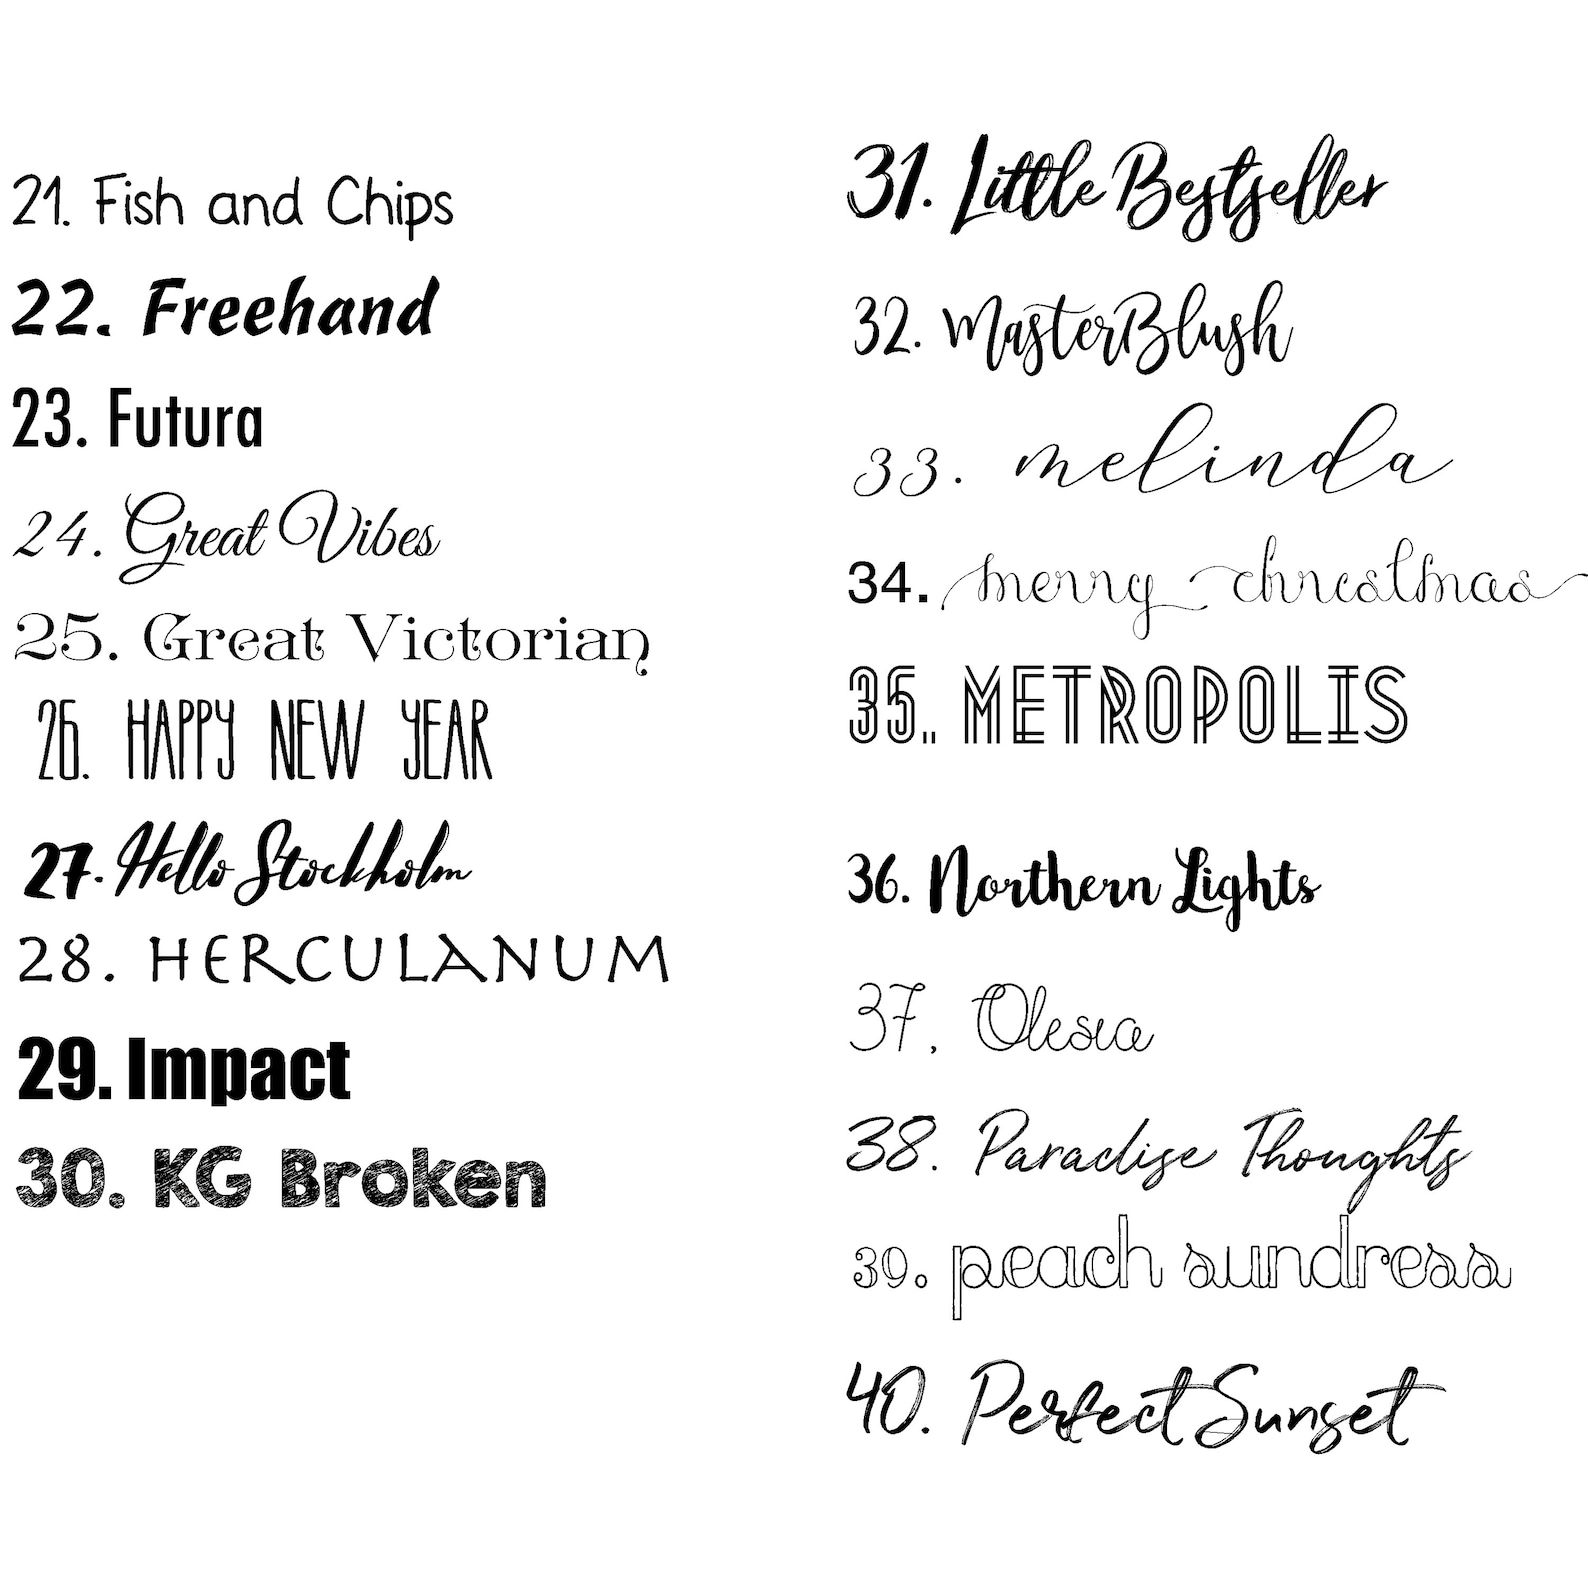 21. Fish and Chips
22. Freehand
23. Futura
24. Great Vibes
25. Great Victorian
26. HAPPY NEW YEAR
27. Hello Stockholm
28. HERCULANUM
29. Impact
30. KG Broken
31. Little Bestseller
32. MasterBlush
33. melinda
34. merry christmas
35.. METROPOLIS
36. Northern Lights
37, Olesia
38. Paradise Thoughts
39. peach sundress
40. Perfect Sunset